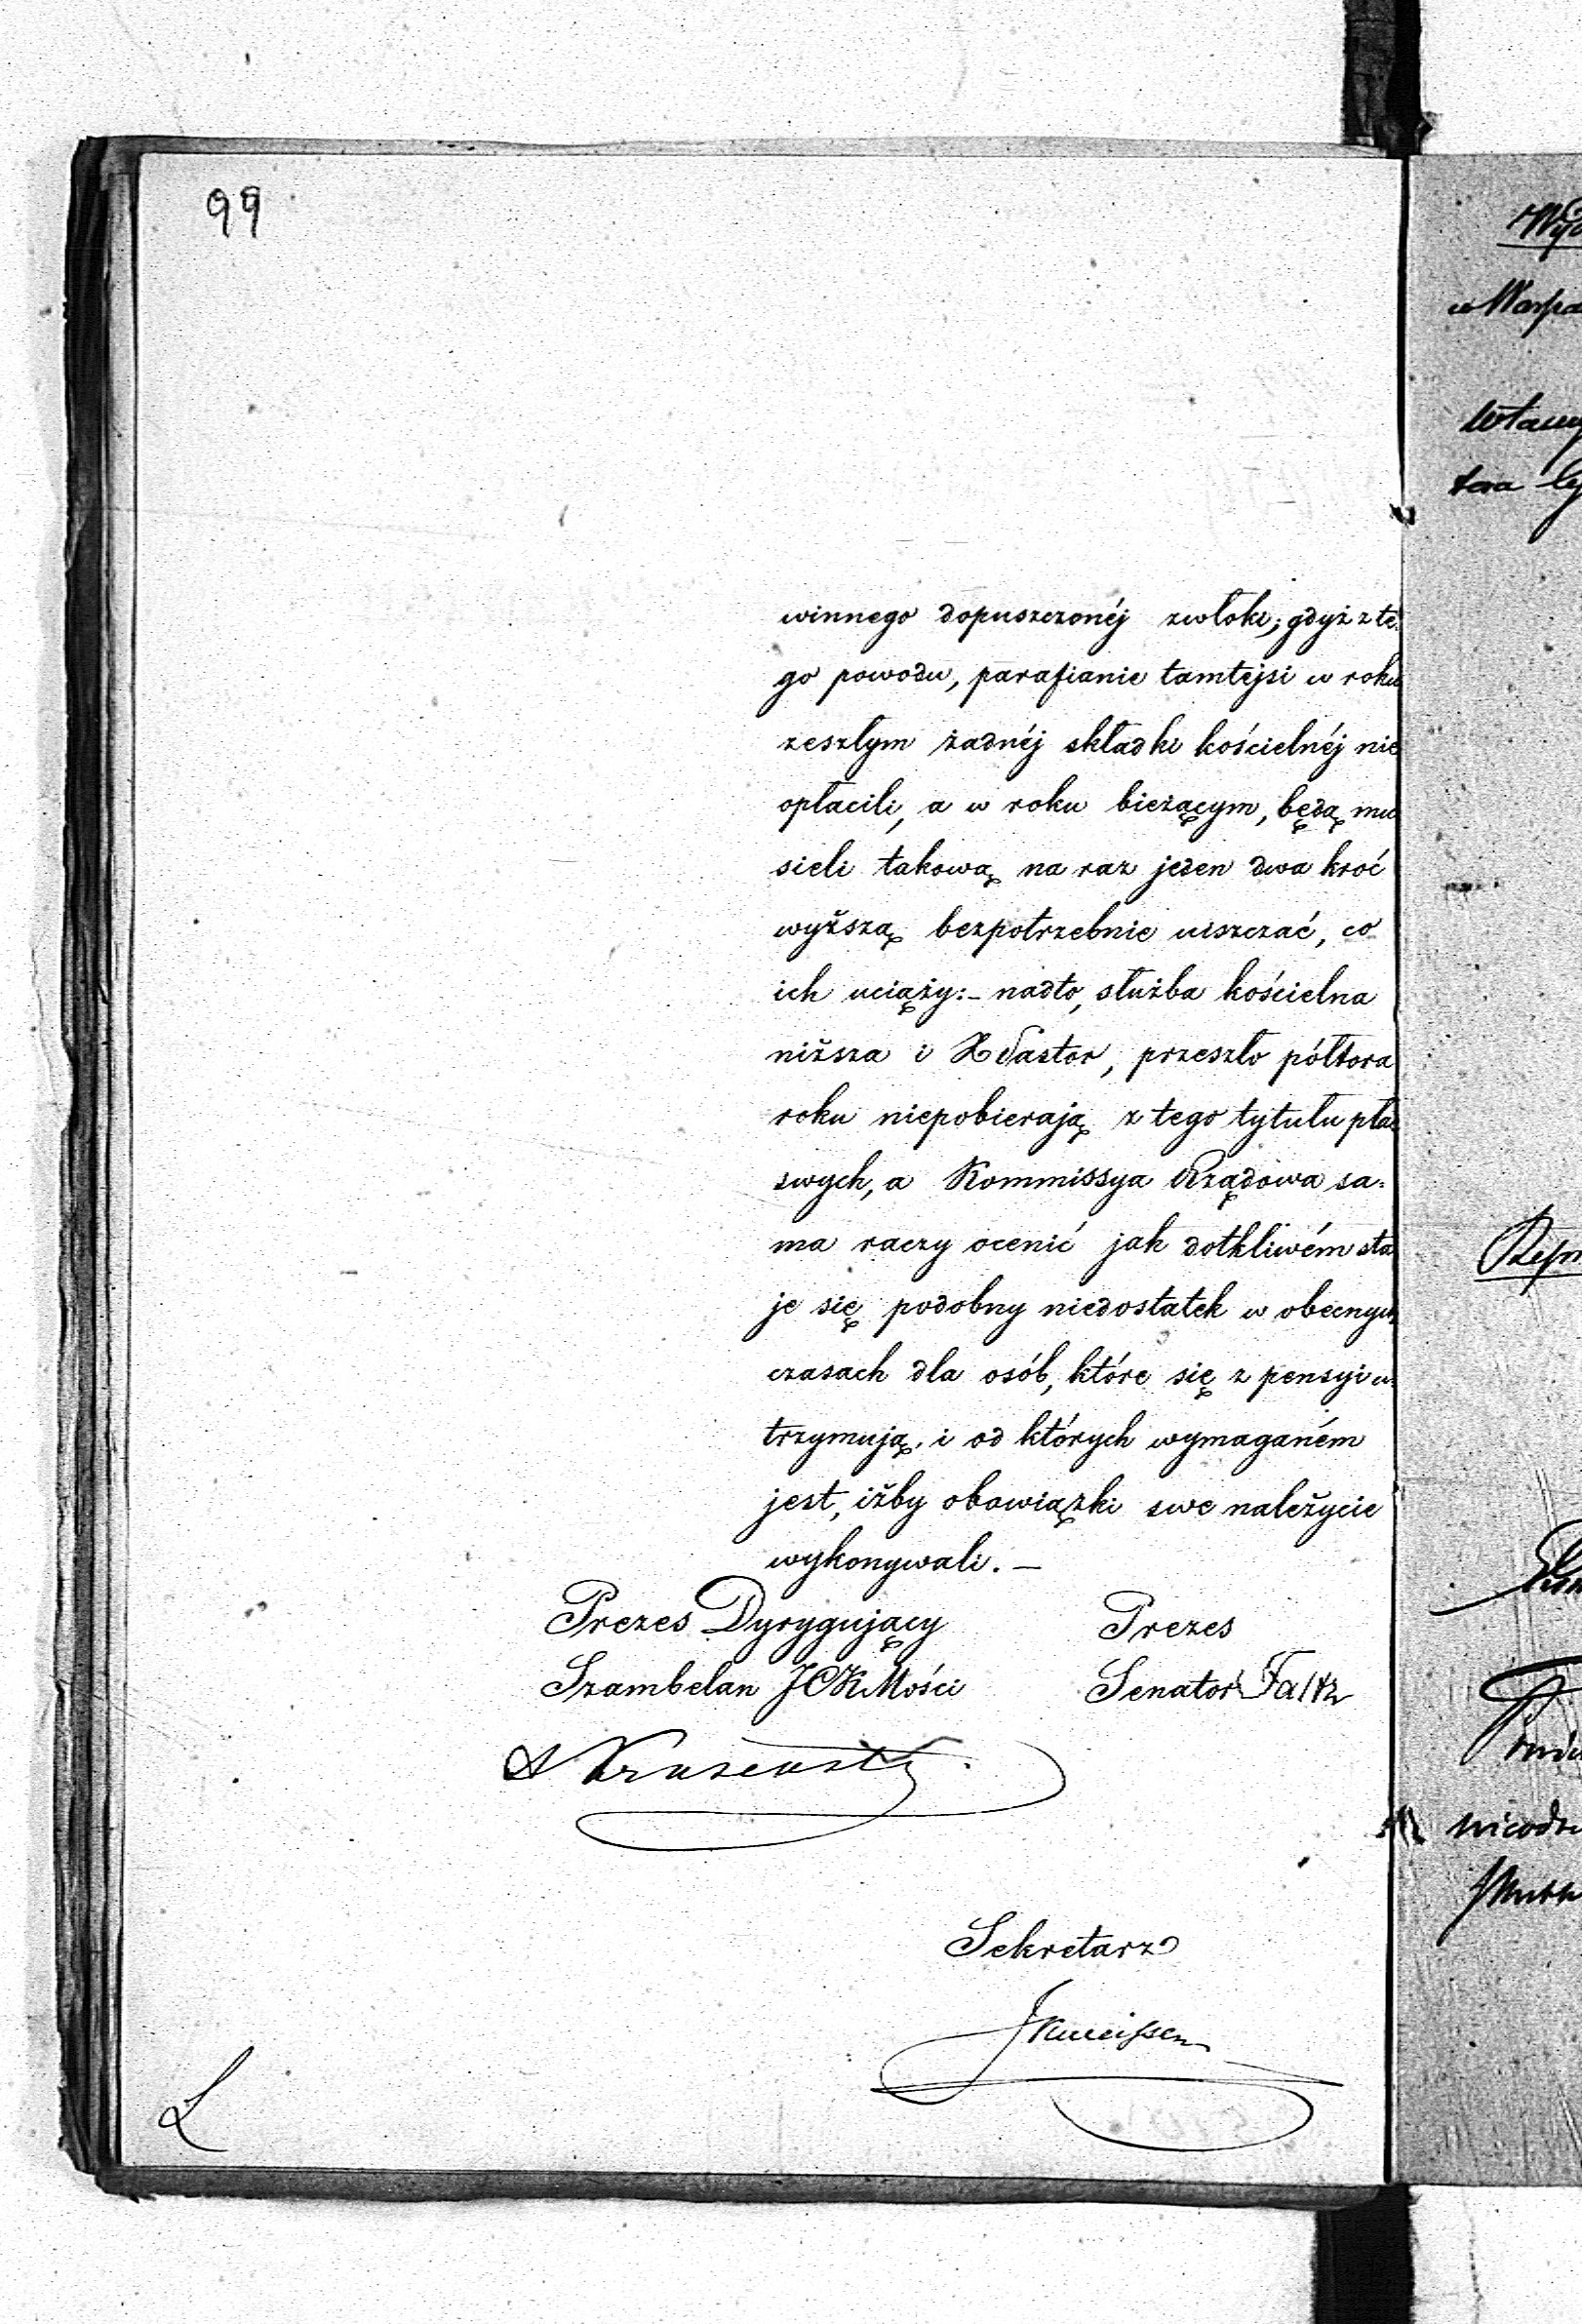 99
winnego dopuszczonéj zwłoki; gdyż z te=
go powodu, parafianie tamtejsi w roku
zeszłym żadnéj składki kościelnéj nie
opłacili, a w roku bieżącym, będą mu
sieli takową na raz jeden dwa kroć
wyższą bezpotrzebnie uiszczać, co
ich uciąży:- nadto, służba kościelna
niższa i X Pastor, przeszło półtora
roku niepobierają z tego tytułu płac
swych, a Kommissya Rządowa sa=
ma raczy ocenić jak dotkliwém sta
je się podobny niedostatek w obecnych
czasach dla osób, które się z pensyi u=
trzymują, i od których wymaganém
jest, iżby obowiązki swe należycie
wykonywali. —
Prezes Dyrygujący Prezes
Szambelan JCKMości Senator Faltz
Sekretarz
L